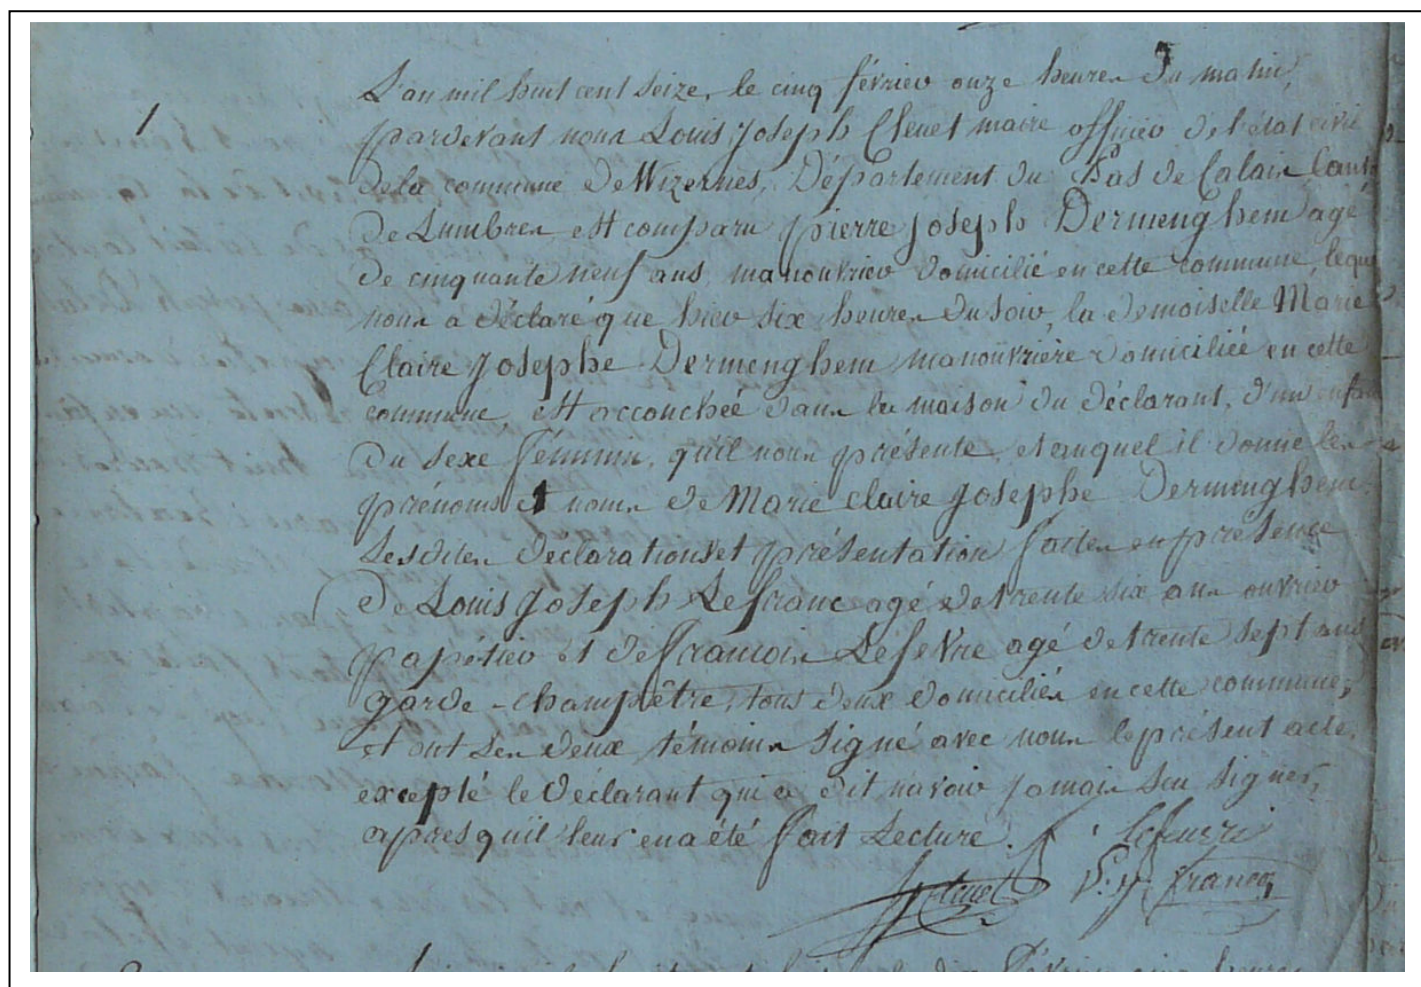 1
L'an mil huit cent seize, le cinq février onze heures du matin,
pardevant nous Louis Joseph Clenet maire officier de l'état civil
de la commune de Wizernes, Département du Pas de Calais, Cant
de Lumbres, est comparu pierre Joseph Dermenghem agé
de cinquante neuf ans, manouvrier domicilié en cette commune, lequel
nous a déclaré que hier six heures du soir, la demoiselle Marie
Claire Josephe Dermenghem manouvrière domiciliée en cette
commune, est accouchée dans la maison du déclarant, d'un enfant
du sexe féminin, qu'il nous présente, et auquel il donne les
prénoms et noms de Marie claire Josephe Dermenghem.
Lesdites déclarations et présentation faites en présence
de Louis Joseph Lefranc agé de trente six ans ouvrier
papétier et de francois Lefevre agé de trente sept ans
garde-champêtre, tous deux domiciliés en cette commune;
et ont les deux témoins signé avec nous le présent acte,
excepté le déclarant qui a dit n'avoir jamais seu signer,
apres qu'il leur en a été fait Lecture.